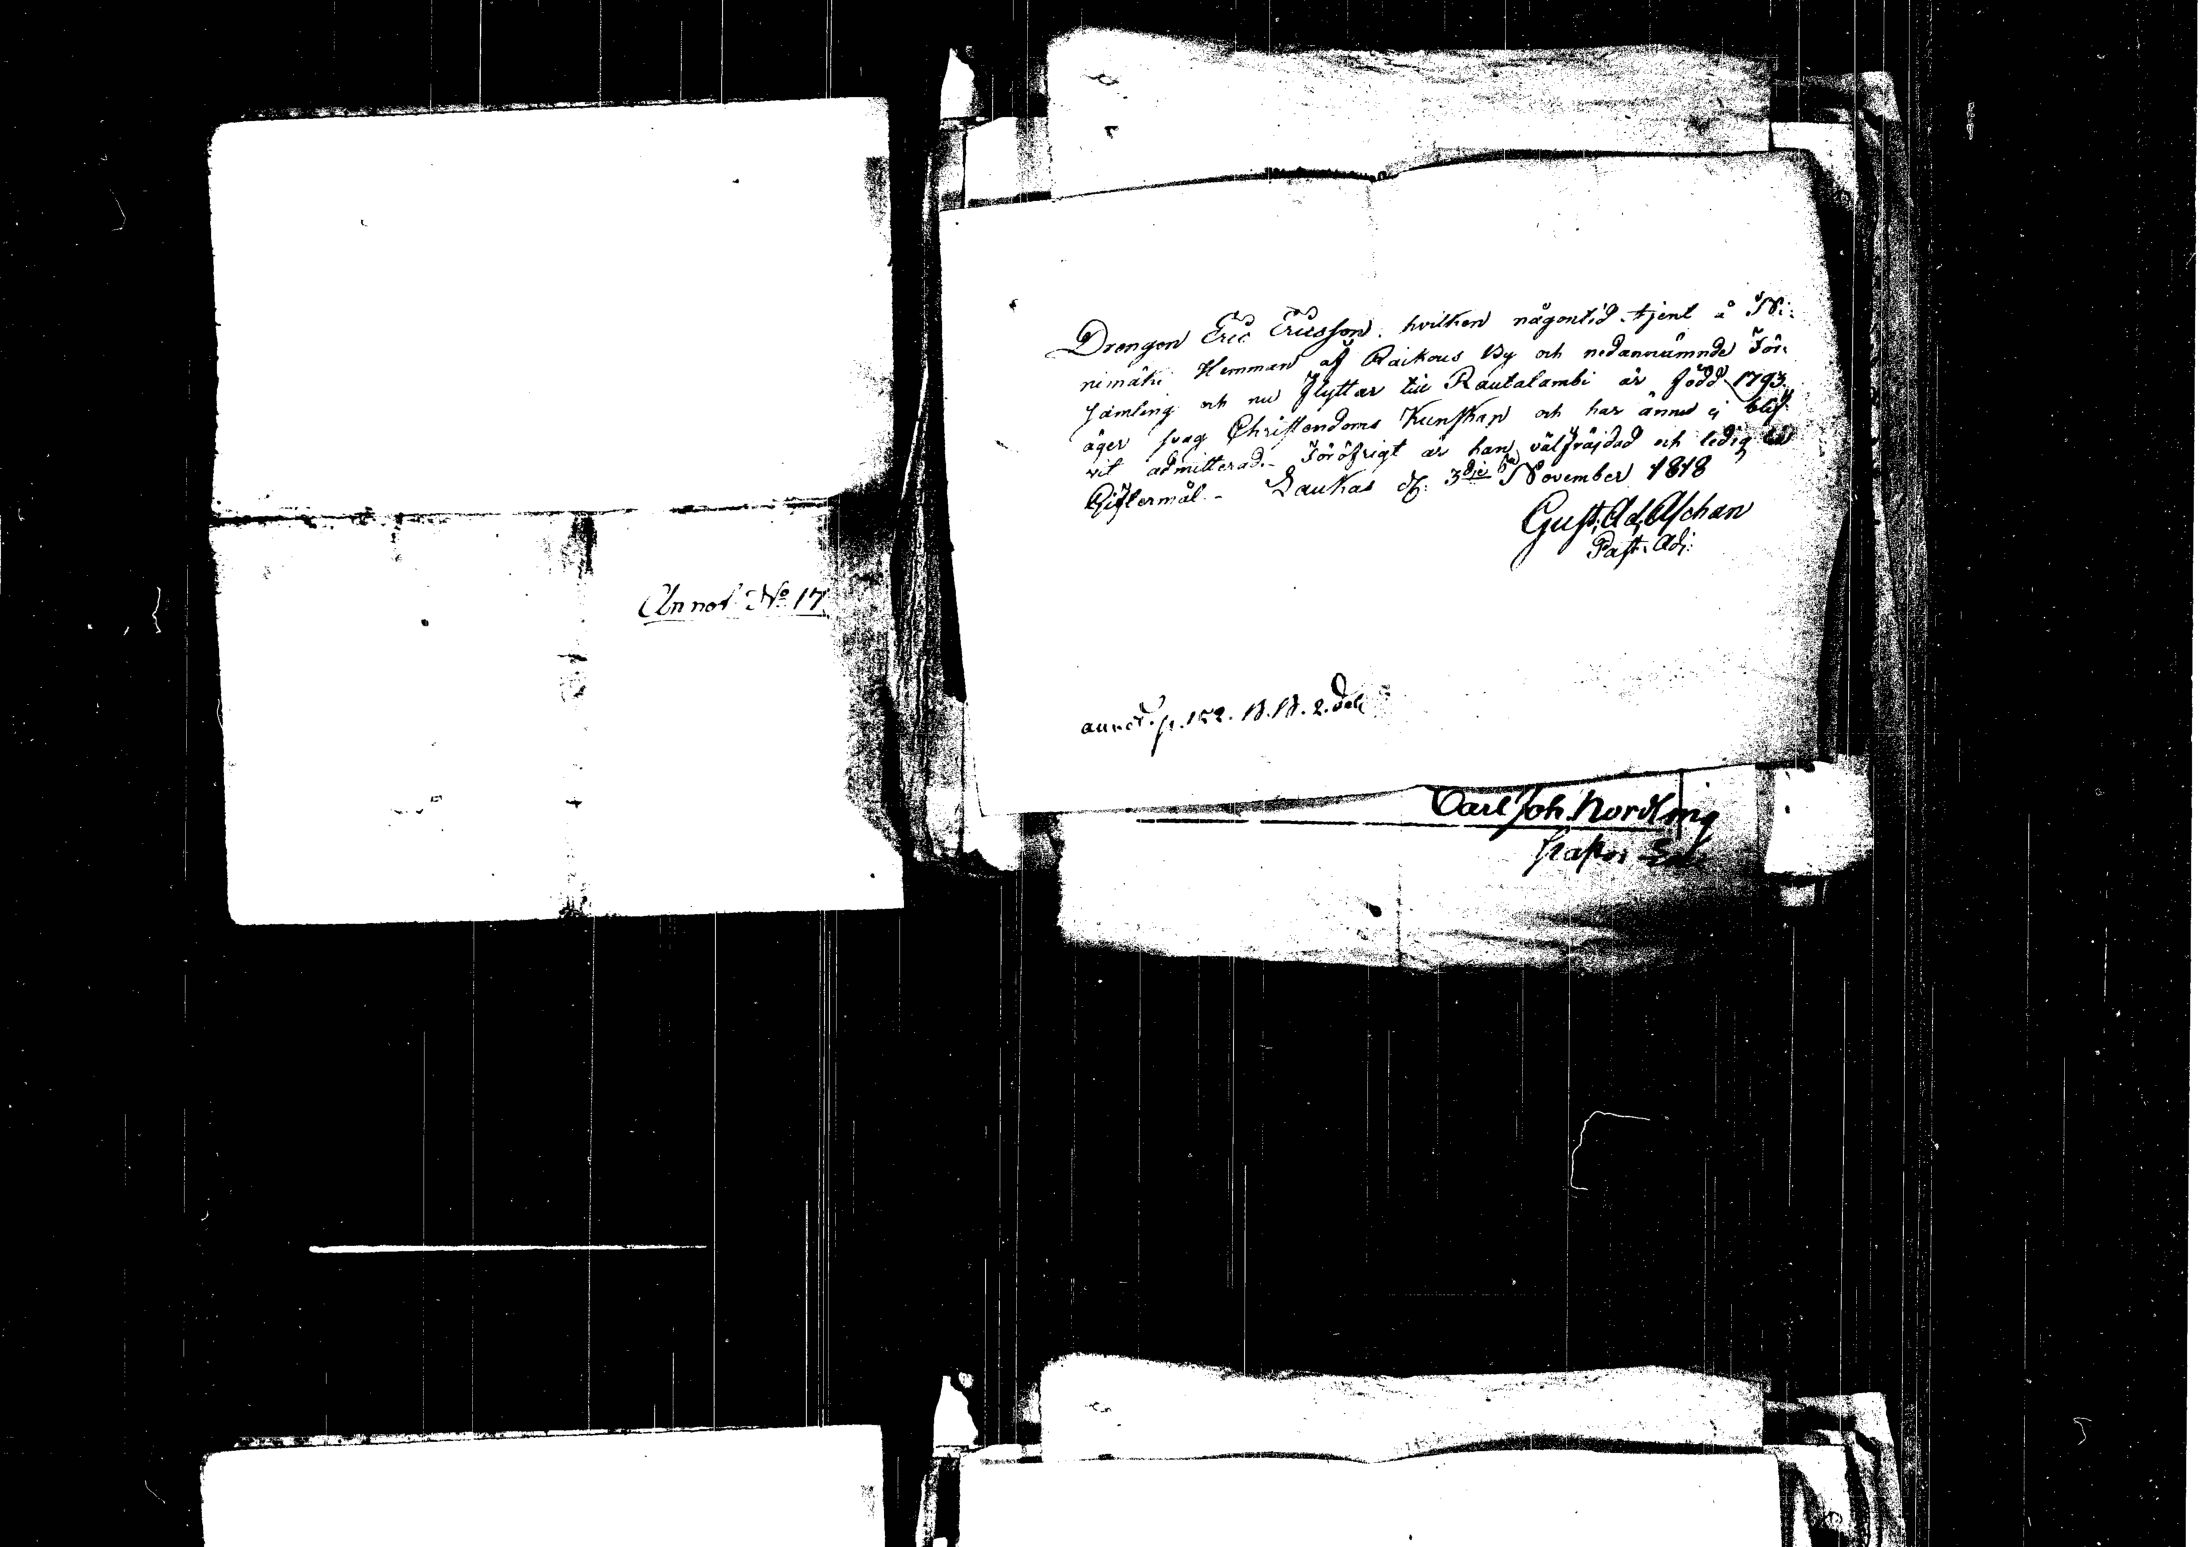 Annot. No 17
Drengen Eric Ericsson hvilken någontid tjent å Ni-
nimäki Hemman af Raikous By och nedannämnde För-
samling och nu flyttar till Rautalambi är född 1793.
äger svag Christendoms Kunskap och har ännu ej blif-
vit admitterad. Föröfrigt är han välfräjdad och ledig till
Giftermål. - Laukas d. 3die November 1818
Gust. Ad. Aschan
Past. Adj.
annot. p. 152. B.B. 2. del
Carl Joh. Nordling